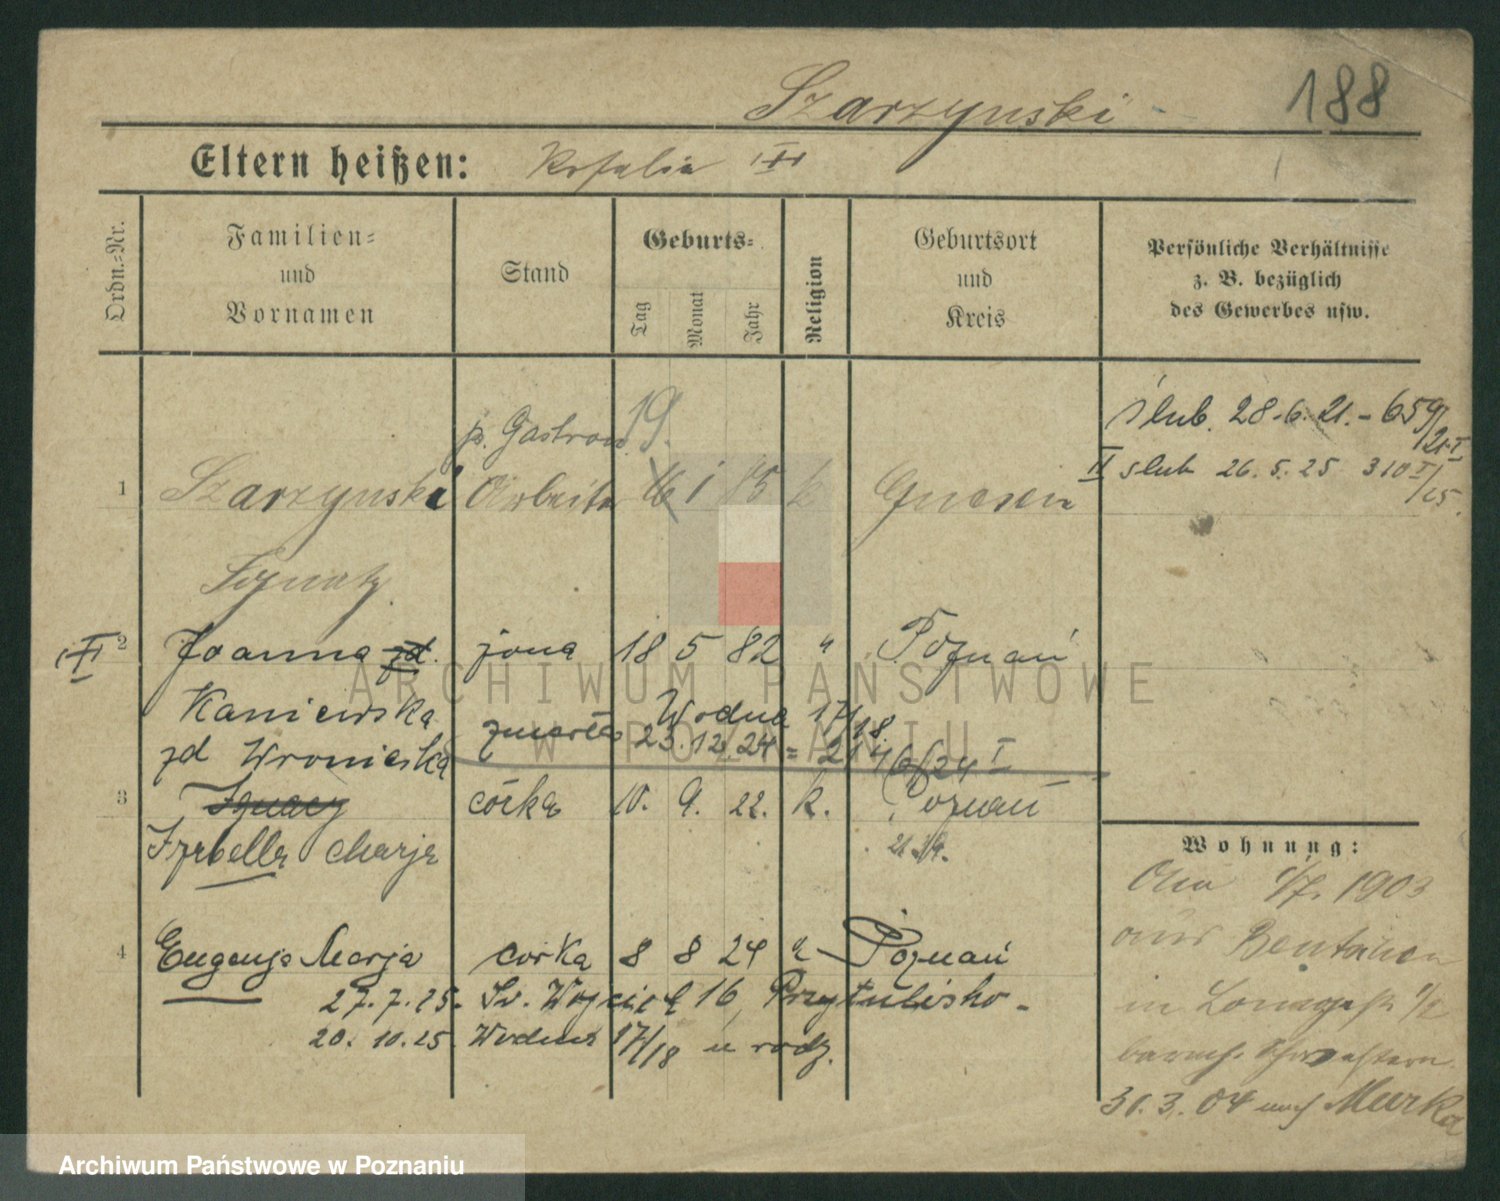 Szarzynski
188
Eltern heißen: Rosalia
Ordn.-Nr.
Familien-
und
Vornamen
Stand
Geburts-
Tag
Monat
Jahr
Religion
Geburtsort
und
Kreis
Persönliche Verhältnisse
z. B. bezüglich
des Gewerbes usw.
p. Gastron 19.
ślub. 28.6.21. - 659/21 I
II ślub 26.5.25 310 I/25.
1 Szarzynski Arbeiter 16 1 85 k Gnesen
Ignatz
2 Joanna zd. żona 18 5 82 " Poznań
Kaniewska
Wodna 17/18
zd Wronieska zmarła 23.12.24 =
3 Ignacy córka 10. 9. 22. k. Poznań
Izabella Marja
4 Eugenja Marja corka 8 8 24 Poznań
27.7.25. Św. Wojciech 16, Przytulisko -
20.10.25 Wodna 17/18 u rodz.
Wohnung:
1/7. 1903
aus Bentschen
in
31.3.04 nach
ARCHIWUM PAŃSTWOWE
W POZNANIU
Archiwum Państwowe w Poznaniu